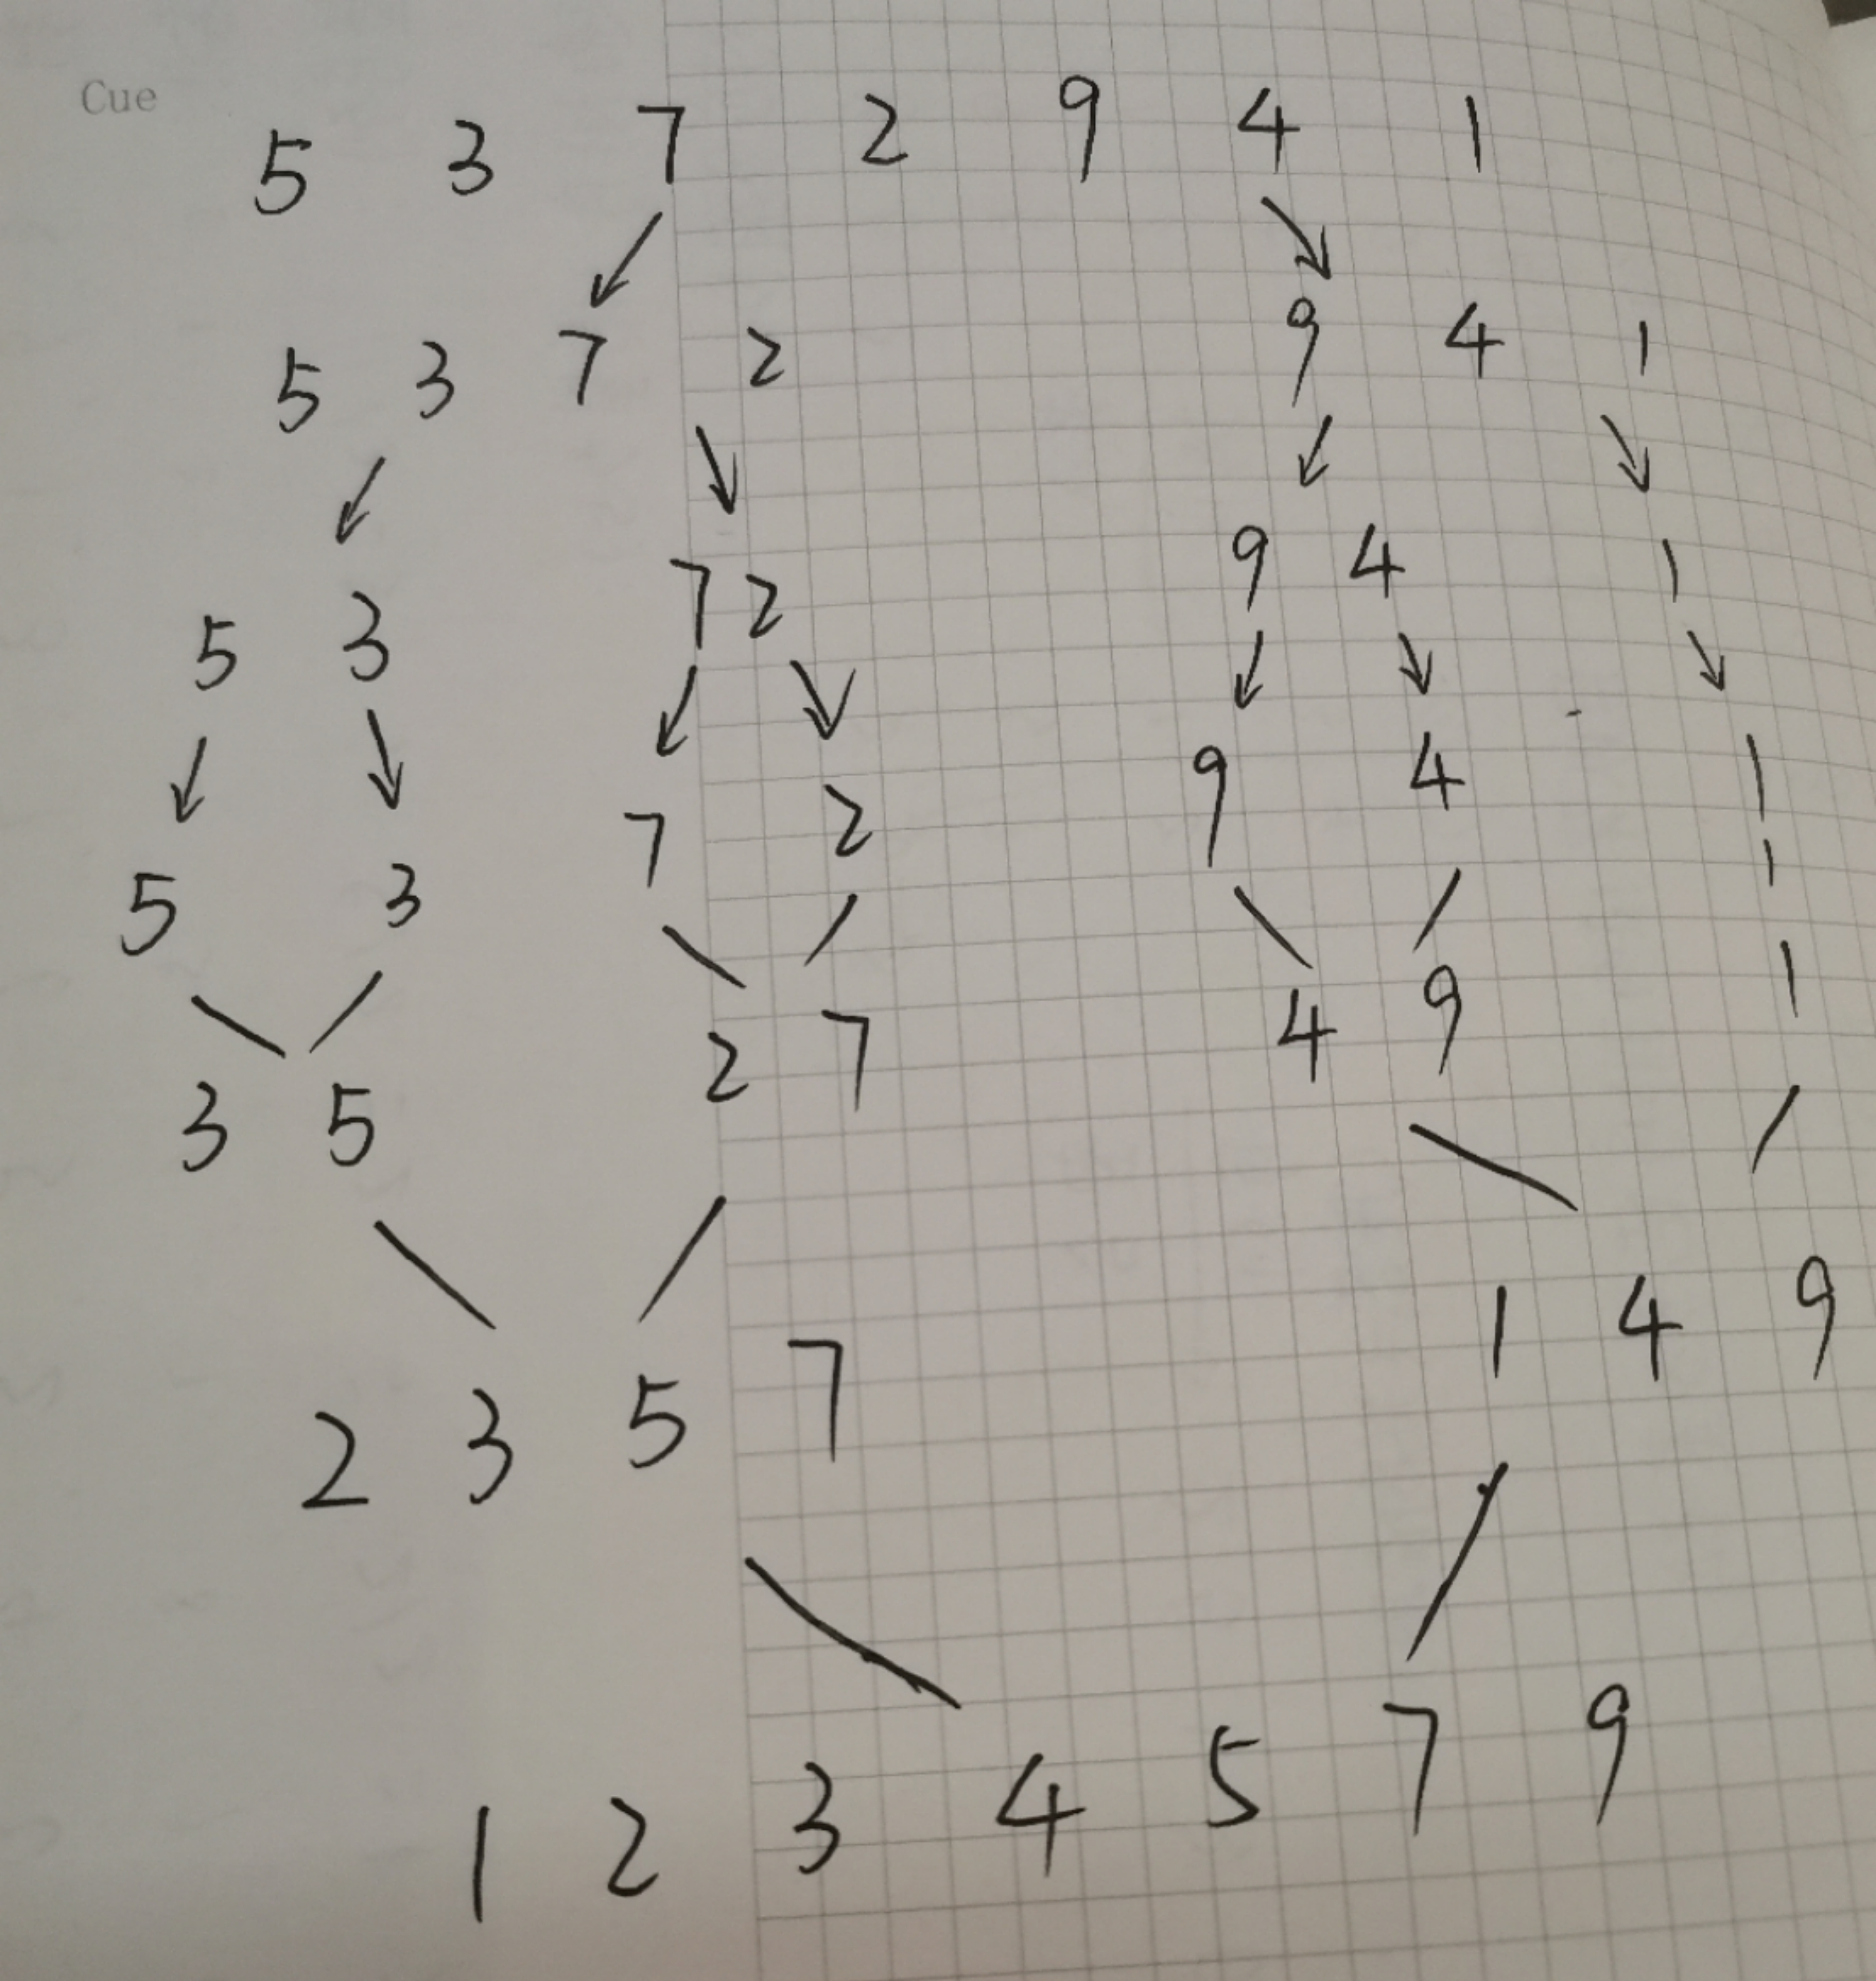 Cue
5 3 7 2 9 4 1
5 3 7 2 9 4 1
5 3 7 2 9 4 1
5 3 7 2 9 4 1
1
3 5 2 7 4 9 1
2 3 5 7 1 4 9
1 2 3 4 5 7 9